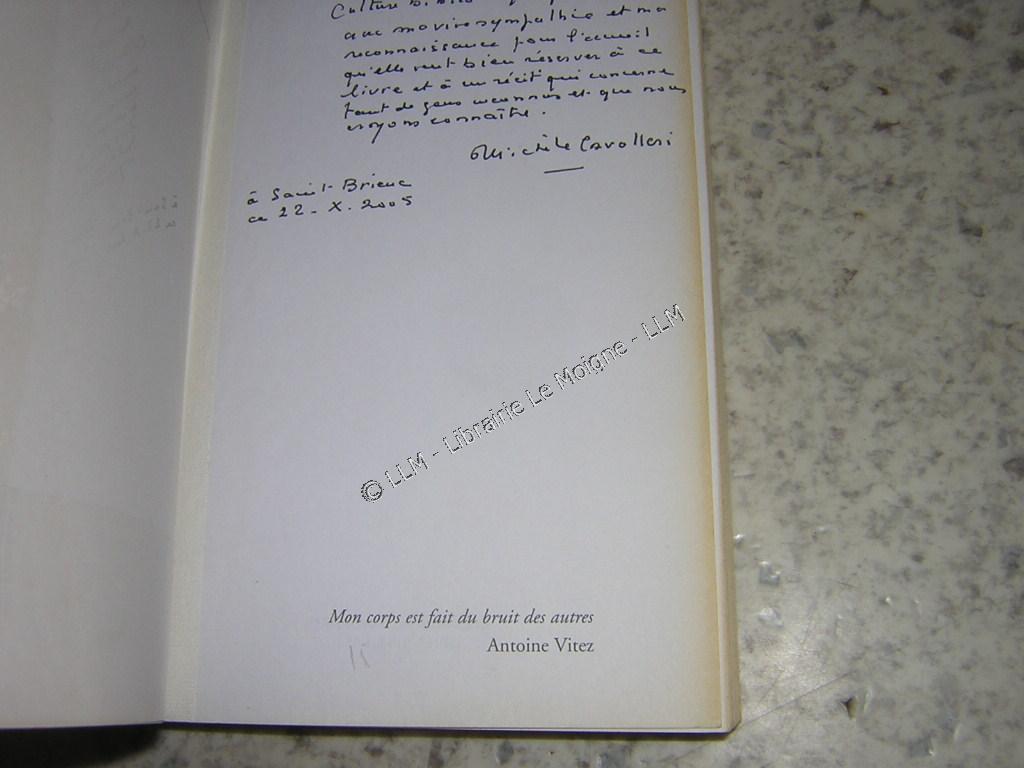 Culture
avec ma vive sympathie et ma
reconnaissance pour l'accueil
qu'elle veut bien réserver à ce
livre et à un récit qui concerne
tant de gens inconnus et que nous
croyons connaître.
Michèle Cavalleri
à Saint-Brieuc
ce 22-X.2005
© LLM - Librairie Le Moigne - LLM
Mon corps est fait du bruit des autres
Antoine Vitez
15